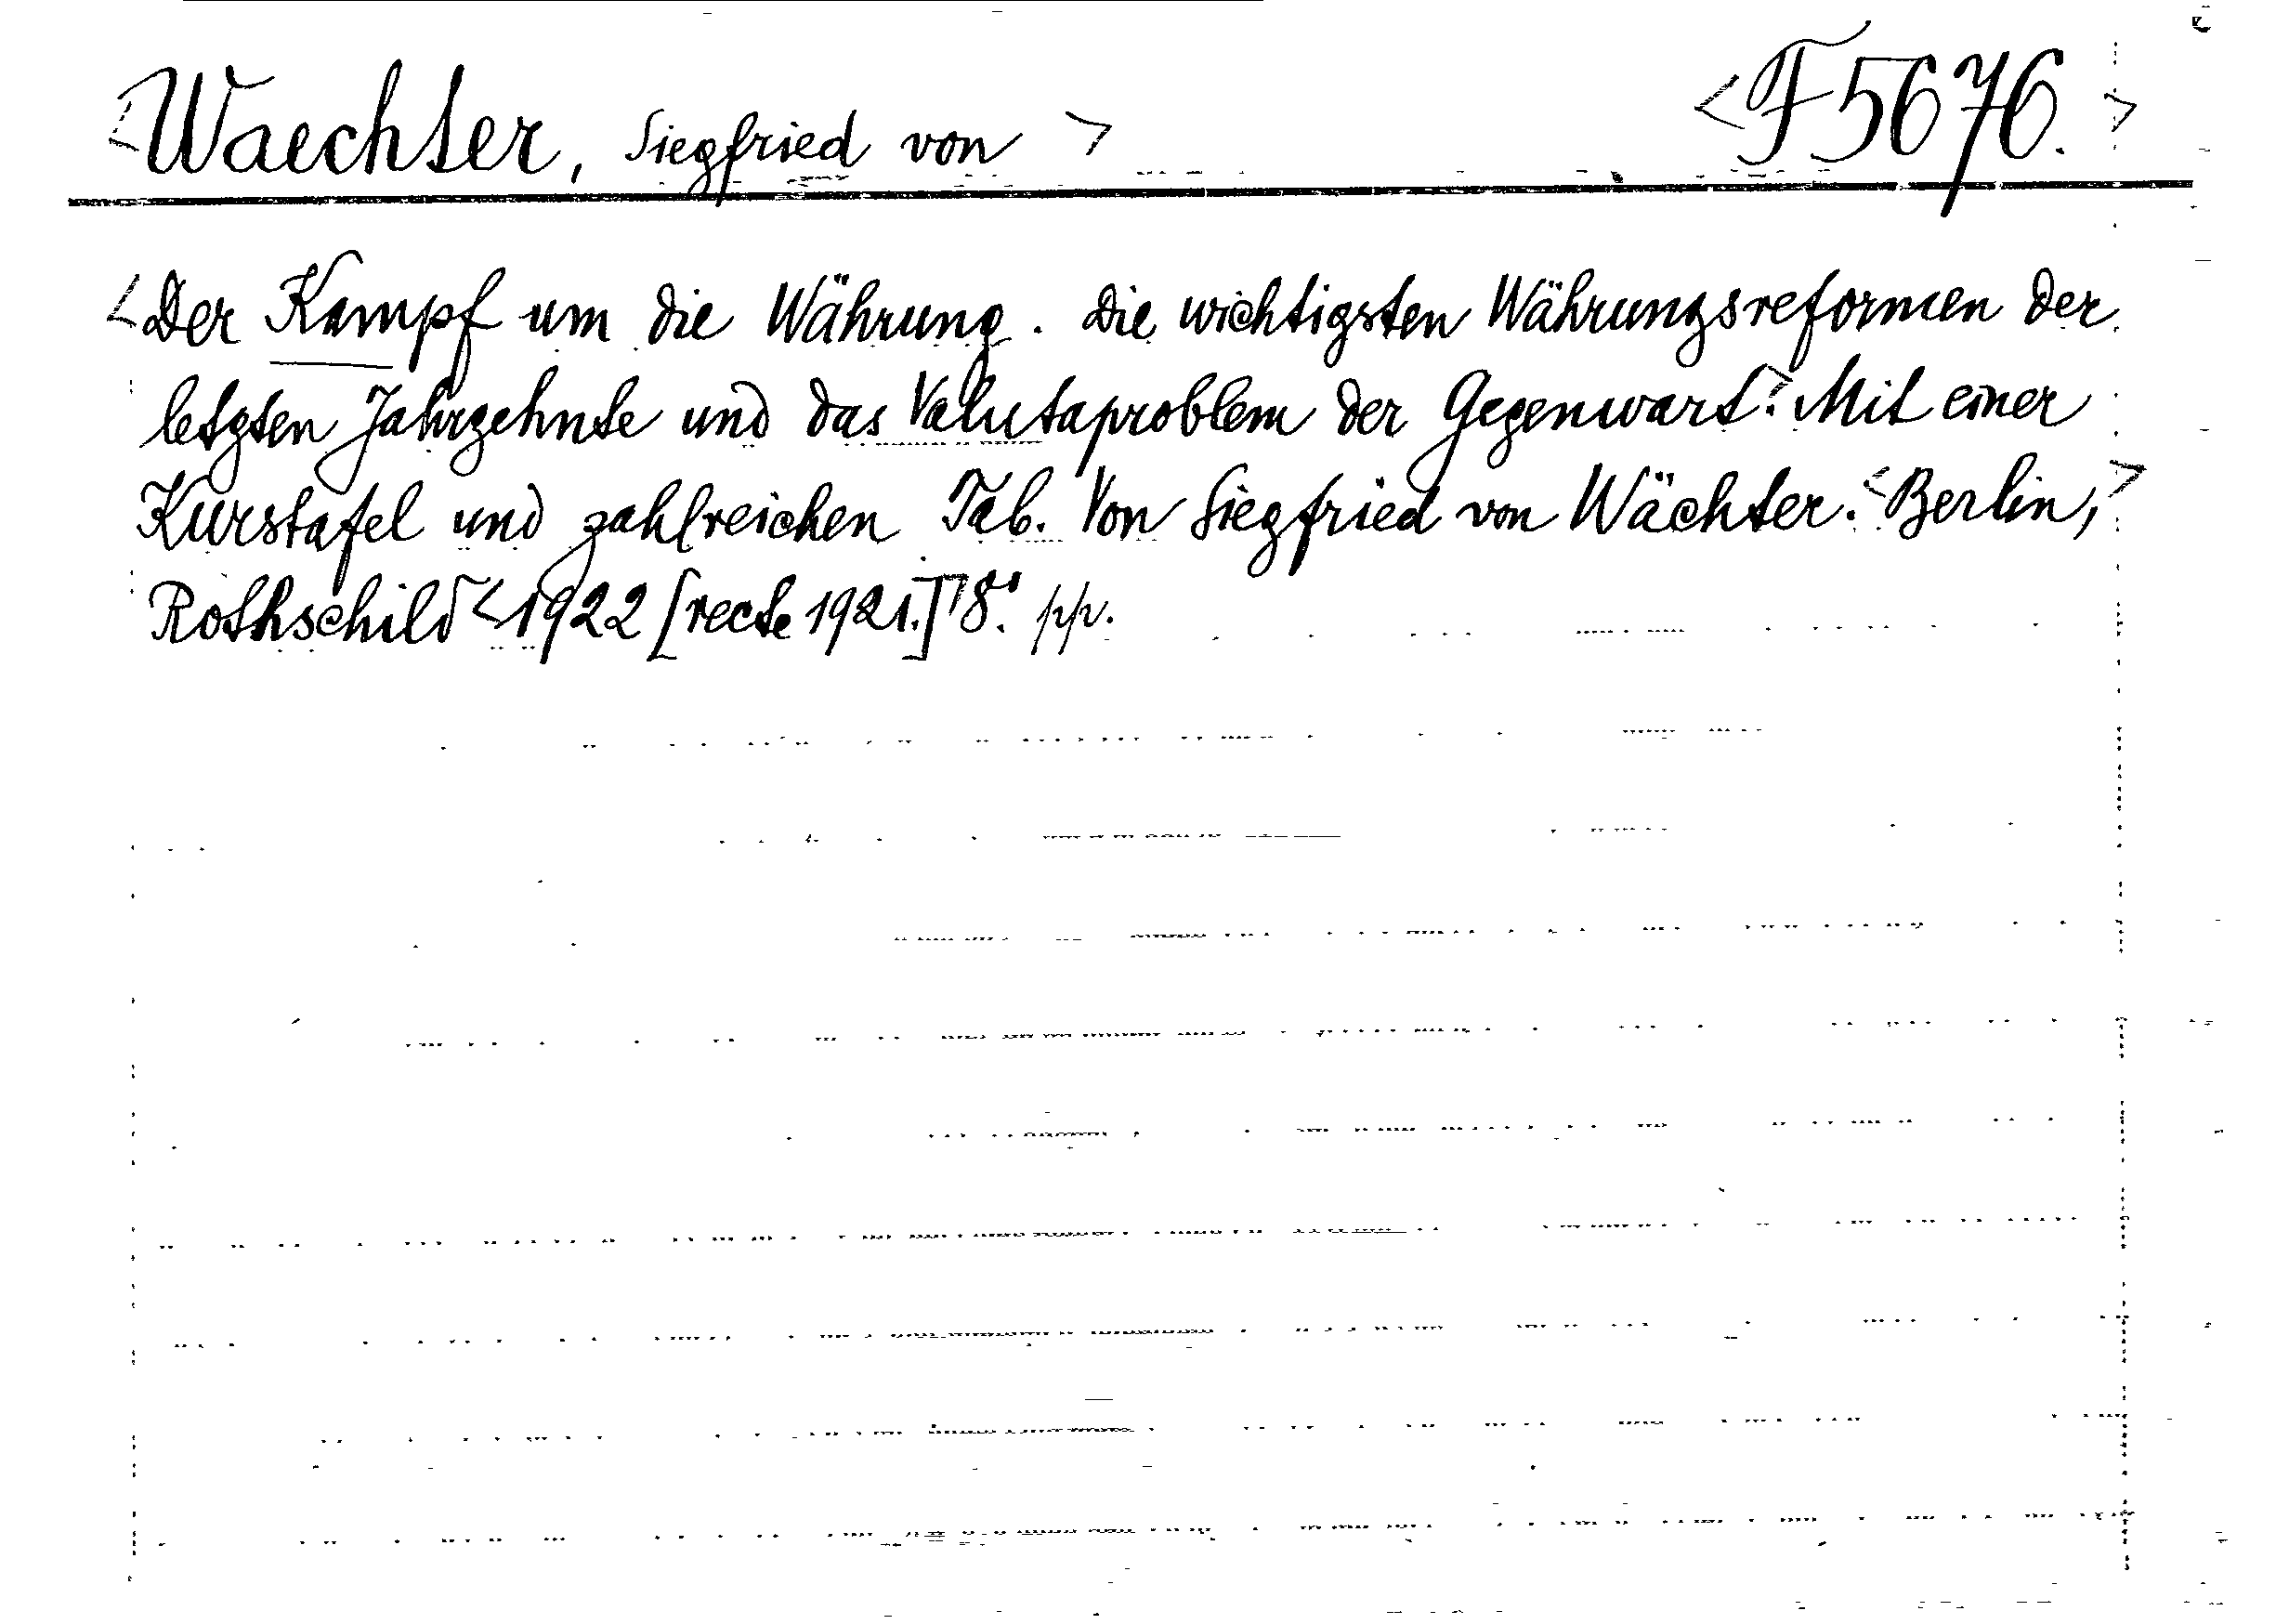 <Waechter, Siegfried von> <F 5676.>
<Der Kampf um die Währung. Die wichtigsten Währungsreformen der
letzten Jahrzehnte und das Valutaproblem der Gegenwart.> Mit einer
Kurstafel und zahlreichen Tab. Von Siegfried von Wächter. <Berlin,>
Rothschild <1922 [recte 1921.]> 8°. pp.